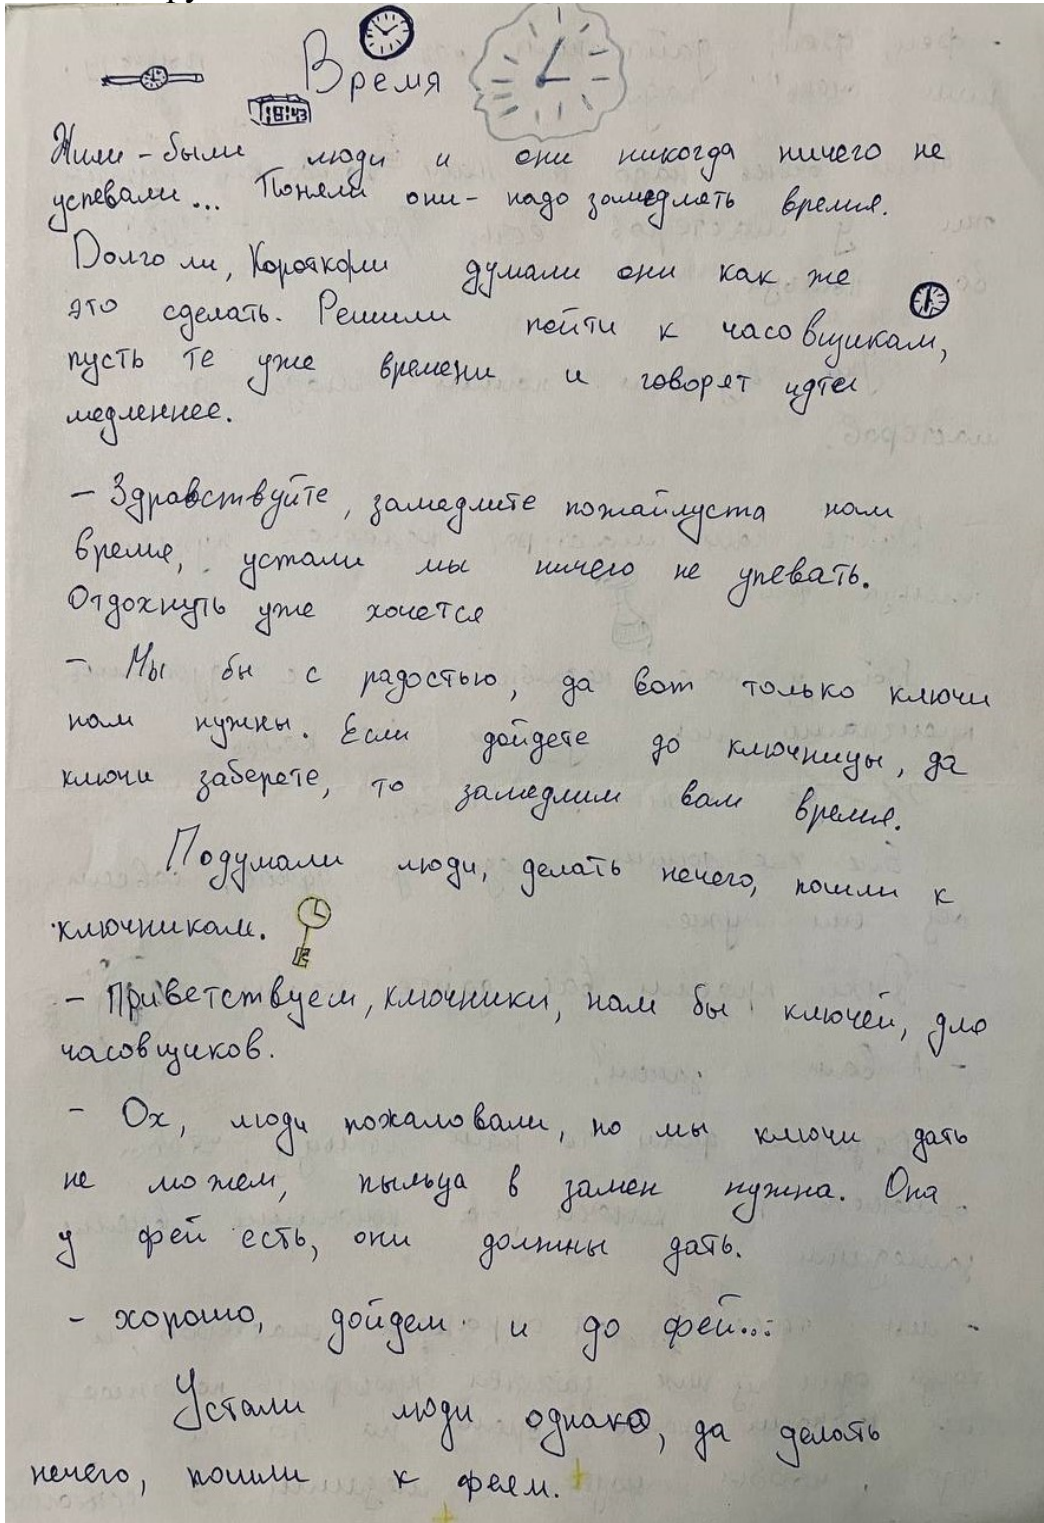 Время
18:43
Жили-были люди и они никогда ничего не
успевали... Поняли они - надо замедлять время.
Долго ли, коротко ли думали они как же
это сделать. Решили пойти к часовщикам,
пусть те уже времени и говорят идти
медленнее.
- Здравствуйте, замедлите пожайлуста нам
время, устали мы ничего не упевать.
Отдохнуть уже хочется
- Мы бы с радостью, да вот только ключи
нам нужны. Если дойдете до ключницы, да
ключи заберете, то замедлим вам время.
Подумали люди, делать нечего, пошли к
ключникам.
- Приветствуем, ключники, нам бы ключей, для
часовщиков.
- Ох, люди пожаловали, но мы ключи дать
не можем, пыльца в замен нужна. Она
у фей есть, они должны дать.
- хорошо, дойдем и до фей...
Устали люди однако, да делать
нечего, пошли к феям.